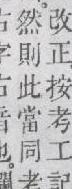 改正按考工記
然則此當同考
古字古音也